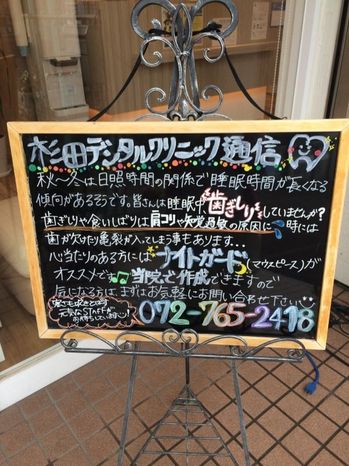 杉田デンタルクリニック通信
秋〜冬は日照時間の関係で睡眠時間が長くなる
傾向があるそうです。皆さんは睡眠中歯ぎしりしていませんか？
歯ぎしりや食いしばりは肩コリや知覚過敏の原因に 時には
歯が欠けたり亀裂が入ってしまう事もあります…
心当たりのある方にはナイトガード(マウスピース)が
オススメです♫当院で作成できますので
気になる方は、まずはお気軽にお問い合わせ下さい
072-765-2418
元気なSTAFFが
お待ちしています